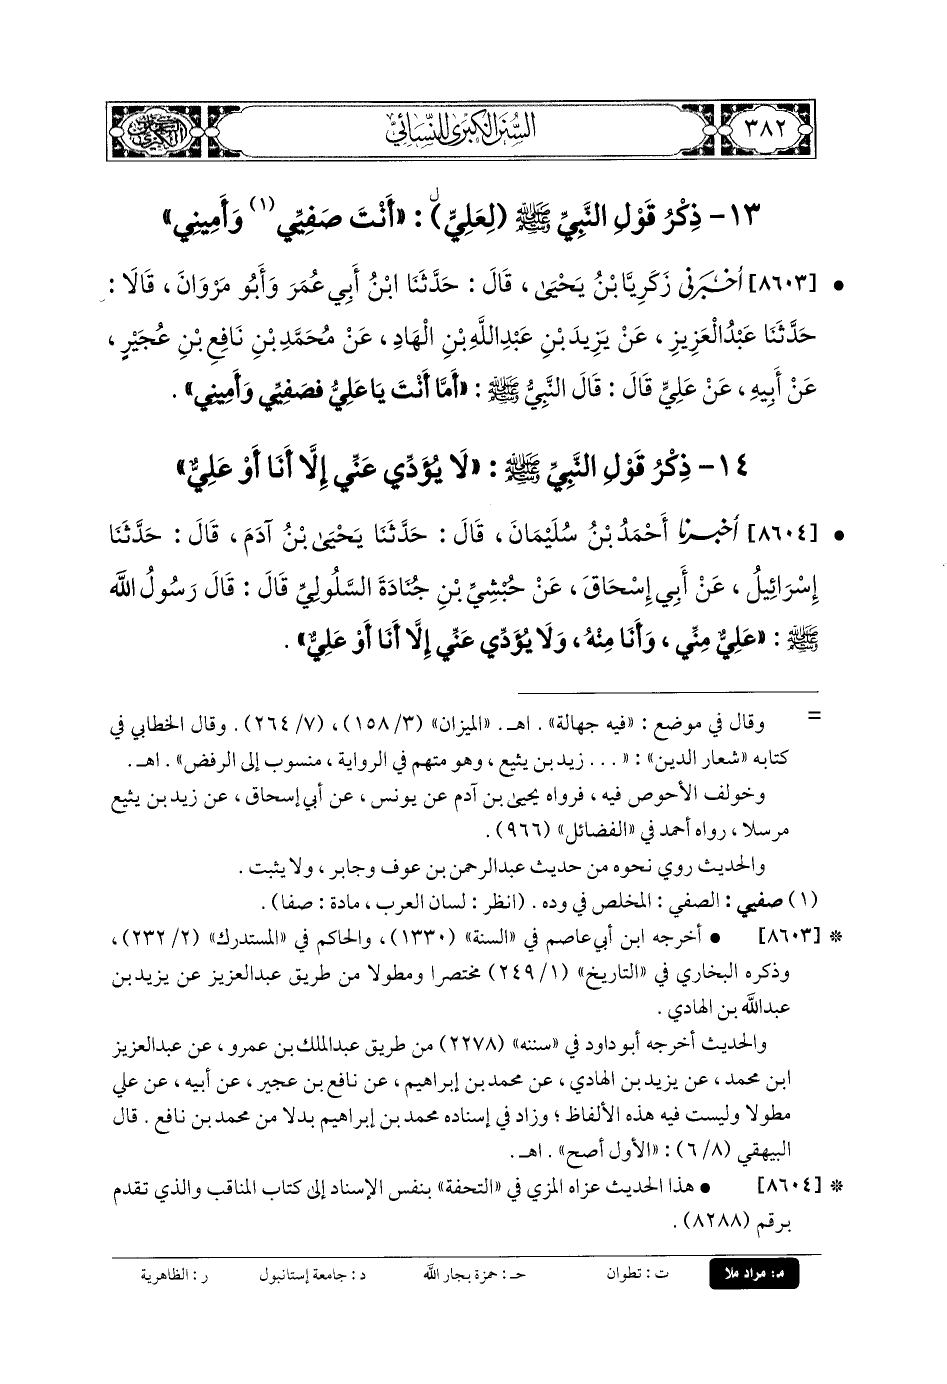 ٣٨٢
السُّنَنُ الكُبْرَىٰ للنَّسَائِيِّ
١٣- ذِكْرُ قَوْلِ النَّبِيِّ ﷺ (لِعَلِيٍّ) : «أَنْتَ صَفِيِّي (١) وَأَمِينِي»
• [٨٦٠٣] أَخْبَرَنِي زَكَرِيَّا بْنُ يَحْيَىٰ ، قَالَ : حَدَّثَنَا ابْنُ أَبِي عُمَرَ وَأَبُو مَرْوَانَ ، قَالَا :
حَدَّثَنَا عَبْدُالْعَزِيزِ ، عَنْ يَزِيدَ بْنِ عَبْدِاللَّهِ بْنِ الْهَادِ ، عَنْ مُحَمَّدِ بْنِ نَافِعِ بْنِ عُجَيْرٍ ،
عَنْ أَبِيهِ ، عَنْ عَلِيٍّ قَالَ : قَالَ النَّبِيُّ ﷺ : «أَمَّا أَنْتَ يَا عَلِيُّ فَصَفِيِّي وَأَمِينِي» .
١٤- ذِكْرُ قَوْلِ النَّبِيِّ ﷺ : «لَا يُؤَدِّي عَنِّي إِلَّا أَنَا أَوْ عَلِيٌّ»
• [٨٦٠٤] أَخْبَرَنَا أَحْمَدُ بْنُ سُلَيْمَانَ ، قَالَ : حَدَّثَنَا يَحْيَىٰ بْنُ آدَمَ ، قَالَ : حَدَّثَنَا
إِسْرَائِيلُ ، عَنْ أَبِي إِسْحَاقَ ، عَنْ حُبْشِيِّ بْنِ جُنَادَةَ السَّلُولِيِّ قَالَ : قَالَ رَسُولُ اللَّهِ
ﷺ : «عَلِيٌّ مِنِّي ، وَأَنَا مِنْهُ ، وَلَا يُؤَدِّي عَنِّي إِلَّا أَنَا أَوْ عَلِيٌّ» .
= وقال في موضع : «فيه جهالة» . اهـ . «الميزان» (٣/ ١٥٨) ، (٧/ ٢٦٤) . وقال الخطابي في
كتابه «شعار الدين» : « . . . زيد بن يثيع ، وهو متهم في الرواية ، منسوب إلى الرفض» . اهـ .
وخولف الأحوص فيه ، فرواه يحيىٰ بن آدم عن يونس ، عن أبي إسحاق ، عن زيد بن يثيع
مرسلا ، رواه أحمد في «الفضائل» (٩٦٦) .
والحديث روي نحوه من حديث عبدالرحمن بن عوف وجابر ، ولا يثبت .
(١) صفيي : الصفي : المخلص في وده . (انظر : لسان العرب ، مادة : صفا) .
* [٨٦٠٣] • أخرجه ابن أبي عاصم في «السنة» (١٣٣٠) ، والحاكم في «المستدرك» (٢/ ٢٣٢) ،
وذكره البخاري في «التاريخ» (١/ ٢٤٩) مختصرا ومطولا من طريق عبدالعزيز عن يزيد بن
عبدالله بن الهادي .
والحديث أخرجه أبو داود في «سننه» (٢٢٧٨) من طريق عبدالملك بن عمرو ، عن عبدالعزيز
ابن محمد ، عن يزيد بن الهادي ، عن محمد بن إبراهيم ، عن نافع بن عجير ، عن أبيه ، عن علي
مطولا وليست فيه هذه الألفاظ ؛ وزاد في إسناده محمد بن إبراهيم بدلا من محمد بن نافع . قال
البيهقي (٨/ ٦) : «الأول أصح» . اهـ .
* [٨٦٠٤] • هذا الحديث عزاه المزي في «التحفة» بنفس الإسناد إلى كتاب المناقب والذي تقدم
برقم (٨٢٨٨) .
م: مراد ملا ت : تطوان حـ : حمزة بجار الله د : جامعة إستانبول ر : الظاهرية